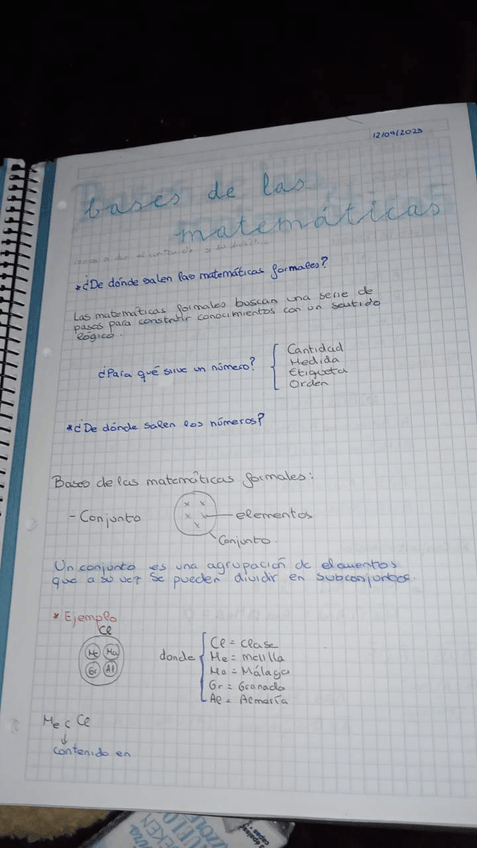 12/09/2023
Bases de las
matemáticas
*¿De dónde salen las matemáticas formales?
Las matemáticas formales buscan una serie de
pasos para construir conocimientos con un sentido
lógico.
¿Para qué sirve un número?
Cantidad
Medida
Etiqueta
Orden
*¿De dónde salen los números?
Bases de las matemáticas formales:
- Conjunto
x x
x x
x
elementos
Conjunto.
Un conjunto es una agrupación de elementos
que a su vez se pueden dividir en subconjuntos.
* Ejemplo
Cl
Me Ma
Gr Al
donde
Cl = Clase
Me = melilla
Ma = Málaga
Gr = Granada
Al = Almería
Me ⊂ Cl
↓
contenido en